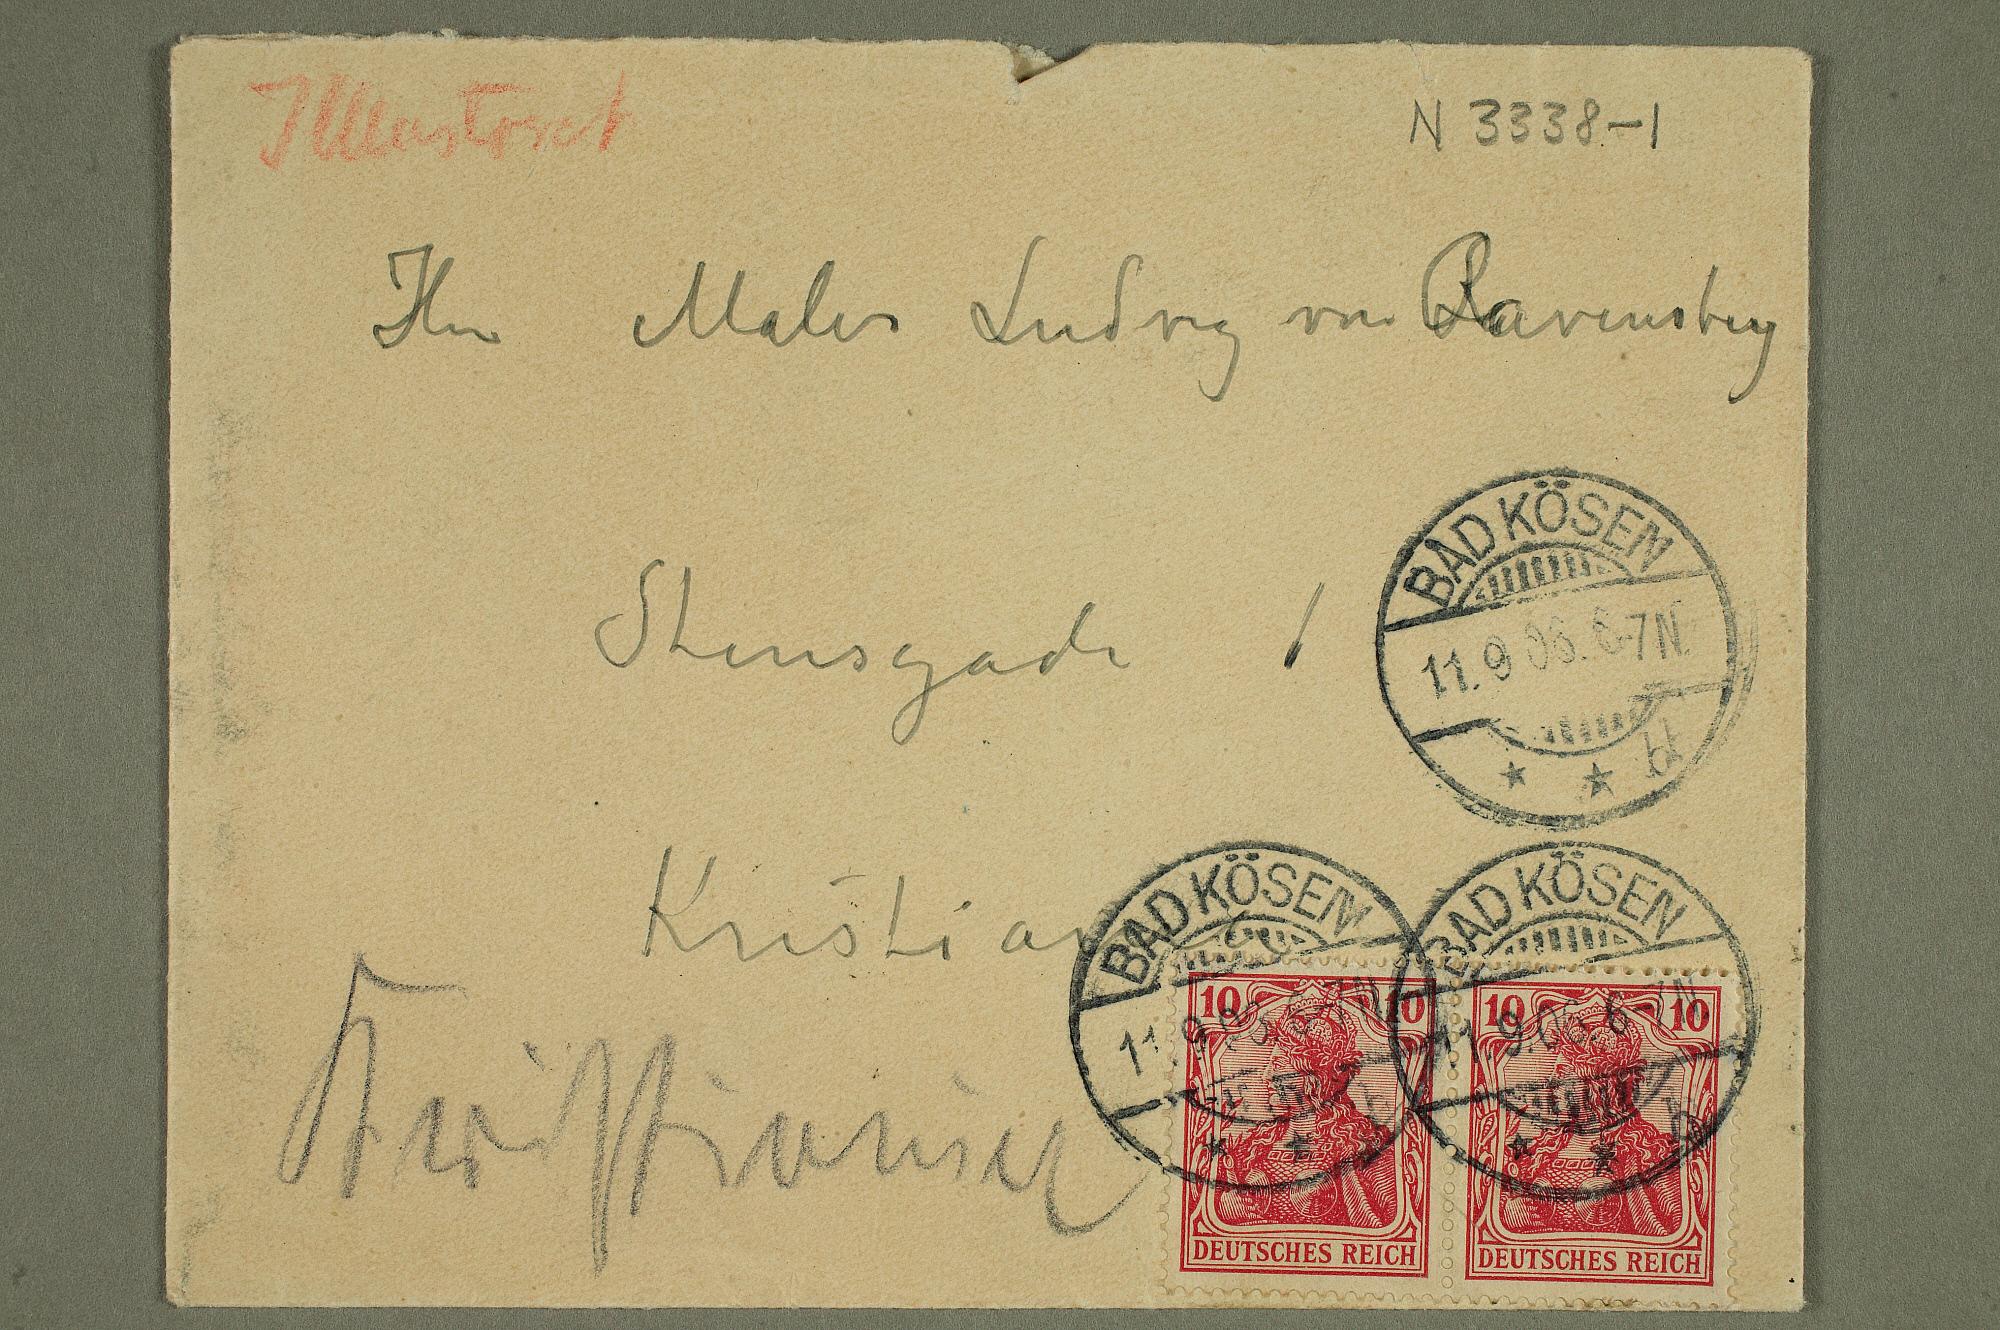 Illustreret
N 3338-1
Herr Maler Ludvig von Ravensberg
Stensgade 1
Kristiania
Kristiania
BAD KÖSEN
11.9.06. 6-7N.
* * b
BAD KÖSEN
11.9.06. 6-7N
* * b
BAD KÖSEN
11.9.06. 6-7N
* * b
10 10
DEUTSCHES REICH
10 10
DEUTSCHES REICH